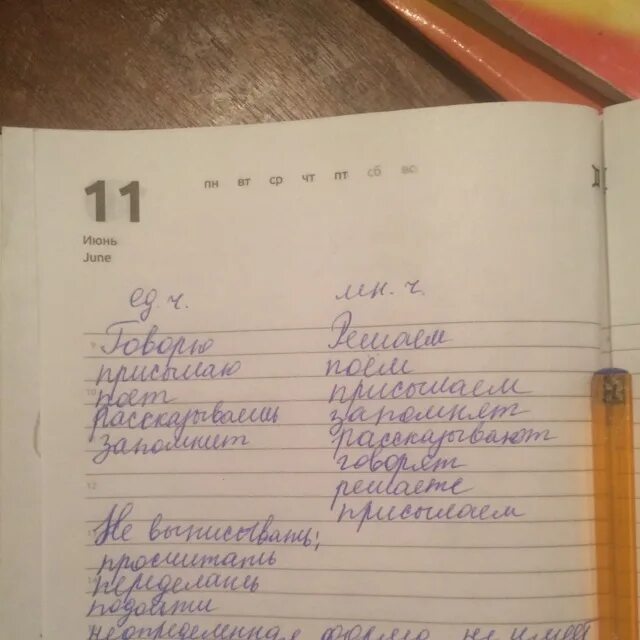 11
пн вт ср чт пт сб вс
Июнь
June
ед ч. мн. ч.
9 Говорю Решаем
присылаю поём
10 поёт присылаем
рассказываешь запомнят
запомнит рассказывают
говорят
12 решаете
присылаем
Не выписывать:
просчитать
переделать
подойти
неопределенная форма, не имеет